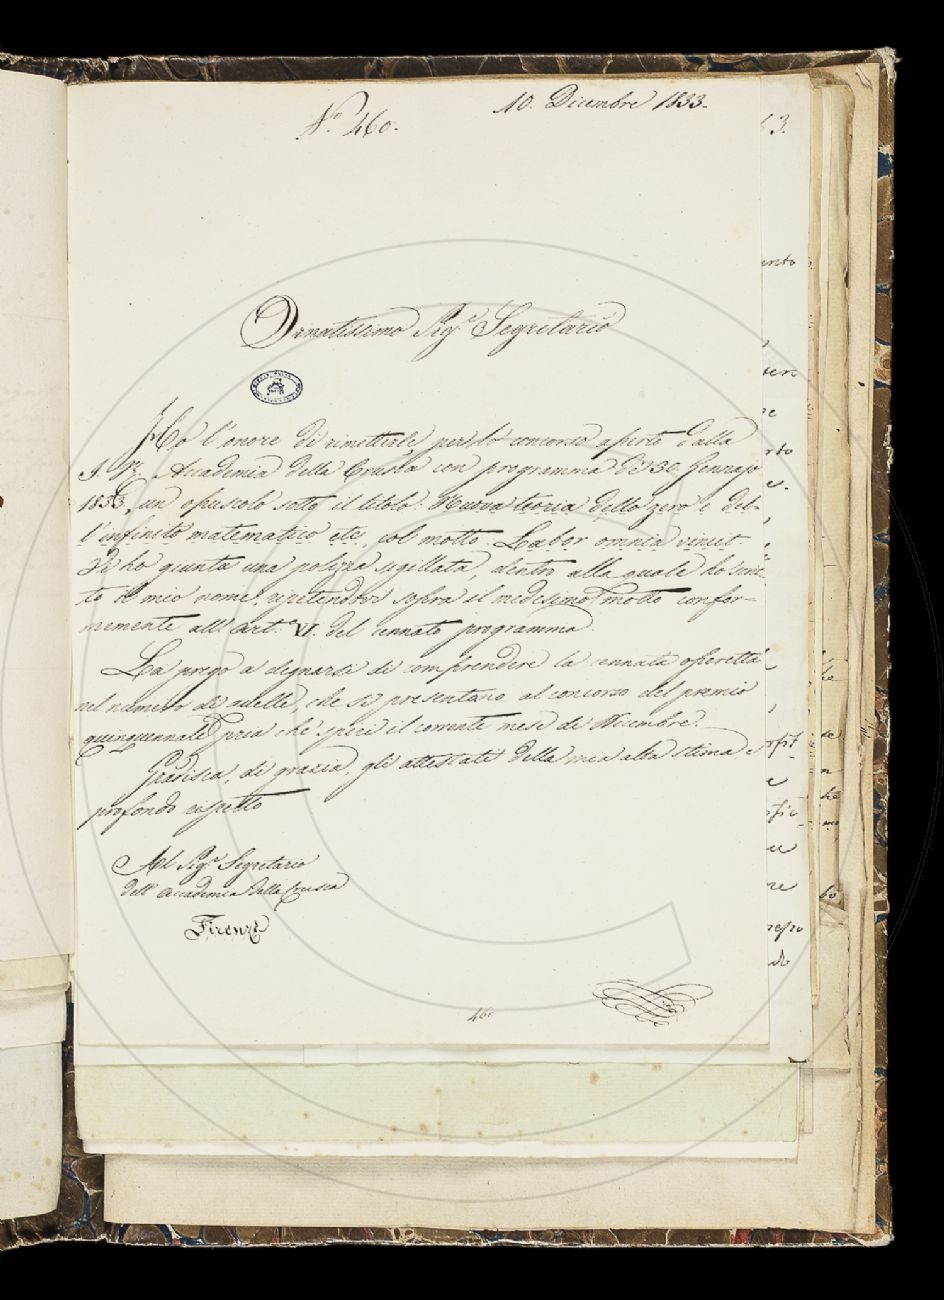 10. Dicembre 1833.
N.º 460.
Ornatissimo Sig.e Segretario
Ho l'onore di rimetterle per lo concorso aperto dalla
I. R. Accademia della Crusca con programma de' 30. Gennajo
1833, un opuscolo sotto il titolo: Nuova teoria dello zero e del-
l'infinito matematico etc, col motto: Labor omnia vincit
Vi ho giunta una polizza sigillata, dentro alla quale ho scrit-
to il mio nome, ripetendovi sopra il medesimo motto confor-
memente all'art.º VI. del cennato programma.
La prego a degnarsi di comprendere la cennata operetta
nel numero di quelle, che si presentano al concorso del premio
quinquennale pria che spiri il corrente mese di Dicembre.
Gradisca, di grazia, gli attestati della mia alta stima, e
profondo rispetto
Al Sig.e Segretario
dell'Accademia della Crusca
Firenze
460